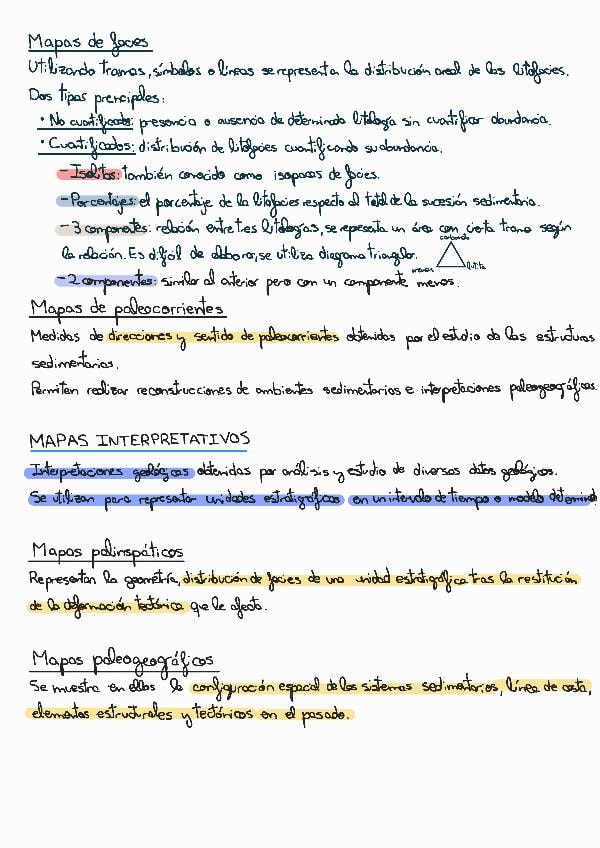 Mapas de facies
Utilizando tramas, símbolos o líneas se representa la distribución areal de las litofacies.
Dos tipos principales:
· No cuantificados: presencia o ausencia de determinada litología sin cuantificar abundancia.
· Cuantificados: distribución de litofacies cuantificando su abundancia.
- Isolitos: también conocido como isopacas de facies.
- Porcentajes: el porcentaje de la litofacies respecto al total de la sucesión sedimentaria.
- 3 componentes: relación entre tres litologías, se representa un área con cierta trama según
la relación. Es difícil de elaborar, se utiliza diagrama triangular.
carbonato
arenas lutita
- 2 componentes: similar al anterior pero con un componente menos.
Mapas de paleocorrientes
Medidas de direcciones y sentido de paleocorrientes obtenidas por el estudio de las estructuras
sedimentarias.
Permiten realizar reconstrucciones de ambientes sedimentarios e interpretaciones paleogeográficas.
MAPAS INTERPRETATIVOS
Interpretaciones geológicas obtenidas por análisis y estudio de diversos datos geológicos.
Se utilizan para representar unidades estratigráficas en un intervalo de tiempo o modelo determinad.
Mapas palinspáticos
Representan la geometría, distribución de facies de una unidad estratigráfica tras la restitución
de la deformación tectónica que le afecta.
Mapas paleogeográficos
Se muestra en ellos la configuración espacial de los sistemas sedimentarios, línea de costa,
elementos estructurales y tectónicos en el pasado.